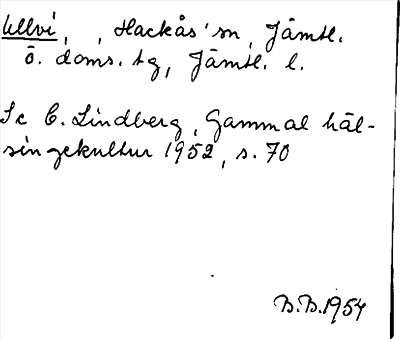 Ullvi, , Hackås sn, Jämtl.
ö. doms. tg, Jämtl. l.
Se C. Lindberg, Gammal häl-
singekultur 1952, s. 70
B.B. 1954